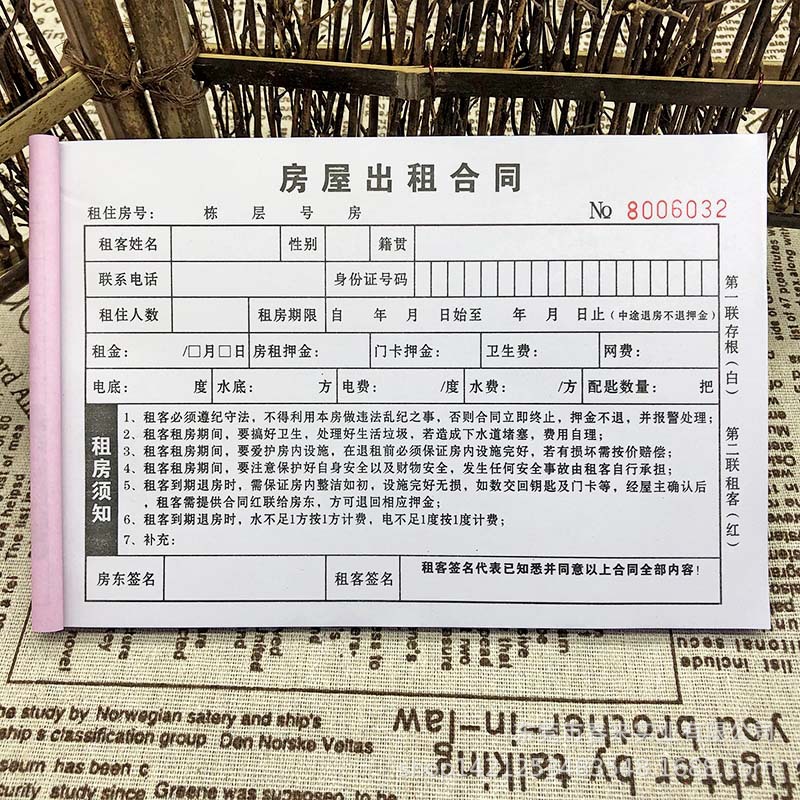 房屋出租合同
租住房号： 栋 层 号 房 № 8006032
租客姓名 性别 籍贯
联系电话 身份证号码
租住人数 租房期限 自 年 月 日始至 年 月 日止（中途退房不退押金）
租金： /□月□日 房租押金： 门卡押金： 卫生费： 网费：
电底： 度 水底： 方 电费： /度 水费： /方 配匙数量： 把
租房须知
1、租客必须遵纪守法，不得利用本房做违法乱纪之事，否则合同立即终止，押金不退，并报警处理；
2、租客租房期间，要搞好卫生，处理好生活垃圾，若造成下水道堵塞，费用自理；
3、租客租房期间，要爱护房内设施，在退租前必须保证房内设施完好，若有损坏需按价赔偿；
4、租客租房期间，要注意保护好自身安全以及财物安全，发生任何安全事故由租客自行承担；
5、租客到期退房时，需保证房内整洁如初，设施完好无损，如数交回钥匙及门卡等，经屋主确认后
，租客需提供合同红联给房东，方可退回相应押金；
6、租客到期退房时，水不足1方按1方计费，电不足1度按1度计费；
7、补充：
房东签名 租客签名 租客签名代表已知悉并同意以上合同全部内容！
第一联存根（白）
第二联租客（红）
the study by Norwegian satery and ship's
ship s classification group Den Norske Veitas
useum has been c
curity study since Greene was supposed to be
you brother-in-law
fighter by talking